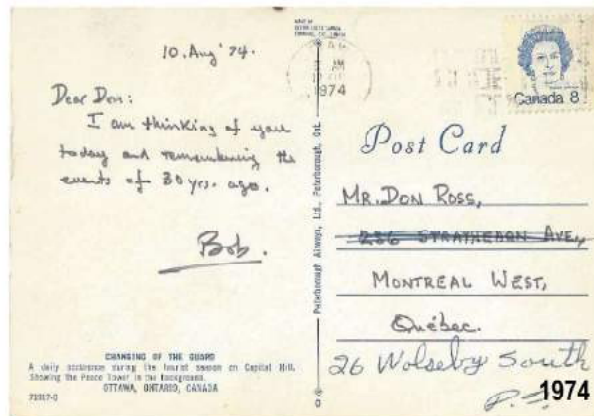 10. Aug '74.
Dear Don:
I am thinking of you
today and remembering the
events of 30 yrs. ago.
Bob.
CHANGING OF THE GUARD
A daily occurance during the tourist season on Capitol Hill.
Showing the Peace Tower in the background.
OTTAWA, ONTARIO, CANADA
Peterborough Airways, Ltd., Peterborough, Ont.
1974
Canada 8
Post Card
MR. DON ROSS,
256 STRATHEARN AVE,
MONTREAL WEST,
Québec.
26 Wolseley South
1974